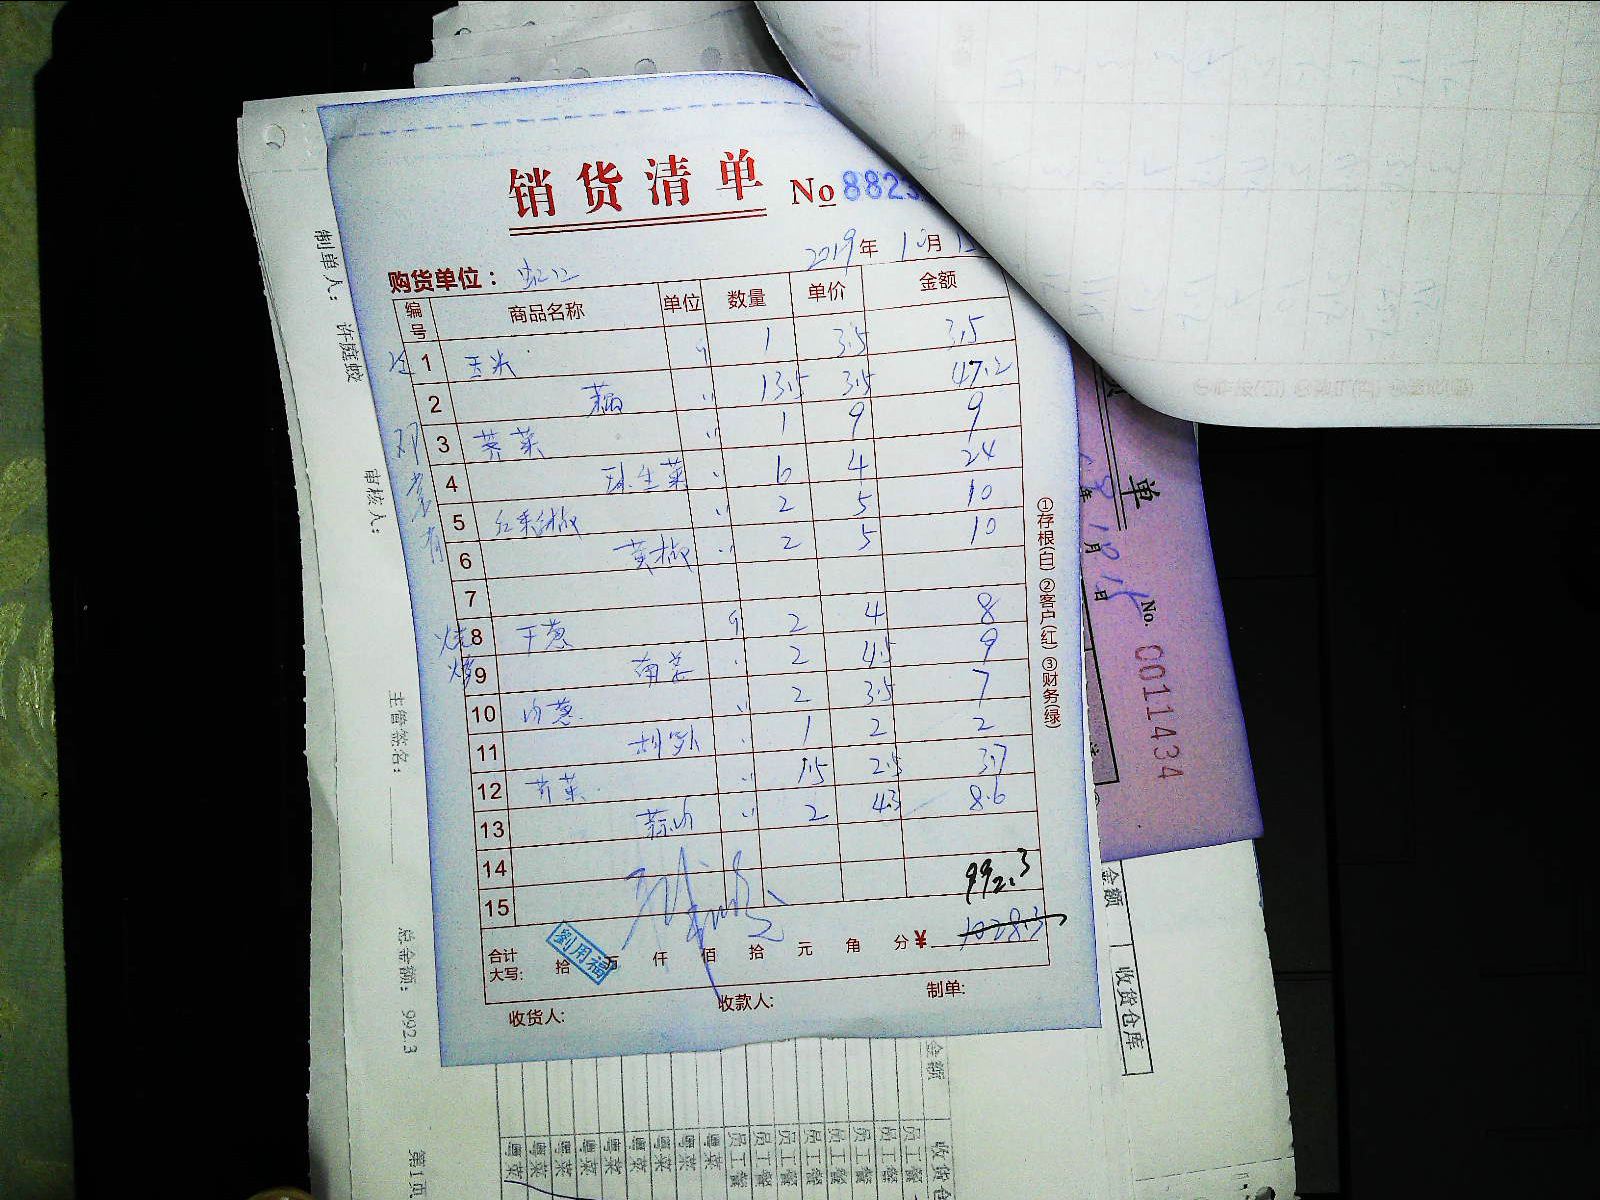 销货清单 No 8823
2019年 10月 12
购货单位：虹江
编号 商品名称 单位 数量 单价 金额
1 玉米 斤 1 3.5 3.5
2 藕 〃 13.5 3.5 47.2
3 荠菜 〃 1 9 9
4 球生菜 〃 6 4 24
5 红彩椒 〃 2 5 10
6 黄椒 〃 2 5 10
7
8 干葱 斤 2 4 8
9 〃 2 4.5 9
10 肉葱 〃 2 3.5 7
11 胡萝卜 〃 1 2 2
12 芥菜 〃 1.5 2.5 3.7
13 蒜肉 〃 2 4.3 8.6
14
15 992.3
合计大写: 拾 万 仟 佰 拾 元 角 分 ¥ 1028.3
劉用福
收货人: 收款人: 制单:
烧烤
①存根(白) ②客户(红) ③财务(绿)
制单人： 许庭蛟
审核人：
主管签名：
总金额： 992.3
第1页
单
年 10月 日
No. 0011434
金额
收货仓库
金额
收货仓
员工餐
员工餐
员工餐
员工餐
员工餐
员工餐
员工餐
员工餐
粤菜
粤菜
粤菜
粤菜
粤菜
粤菜
粤菜
粤菜
粤菜